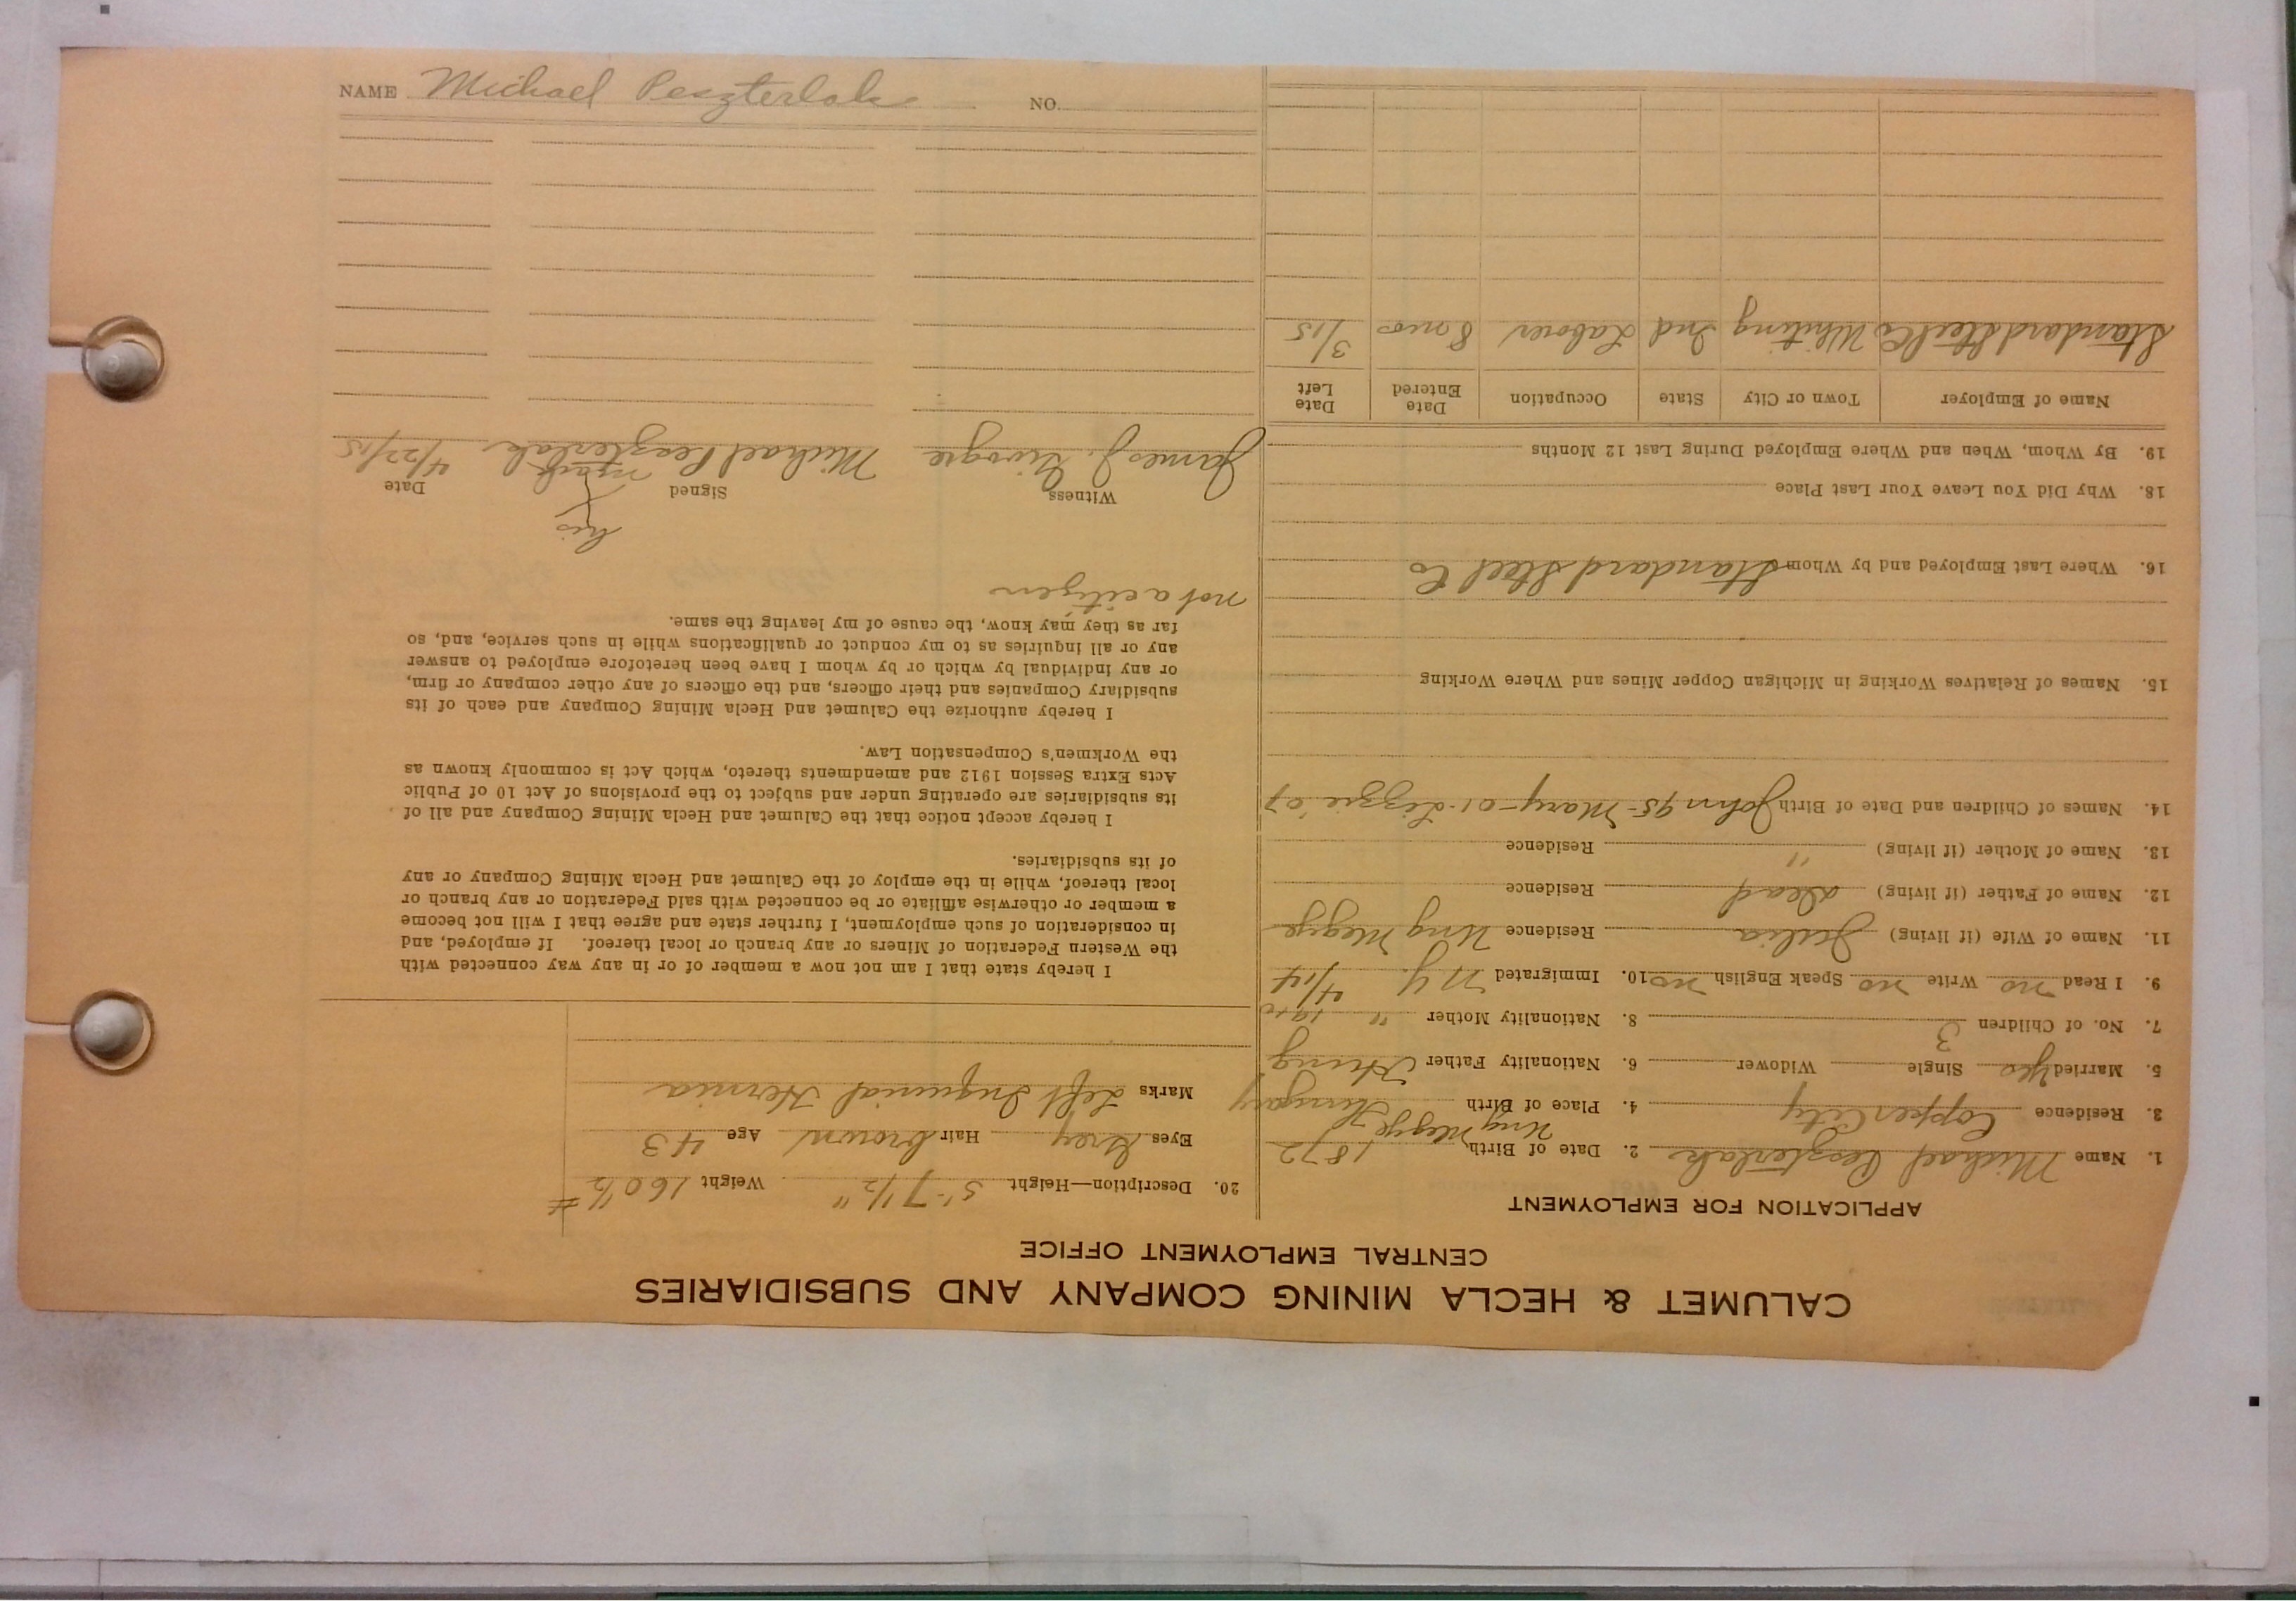 CALUMET & HECLA MINING COMPANY AND SUBSIDIARIES
CENTRAL EMPLOYMENT OFFICE
APPLICATION FOR EMPLOYMENT
1. Name Michael Peszterlak 2. Date of Birth 1872
Ung Megye
3. Residence Copper City 4. Place of Birth Hungary
5. Married Yes Single Widower 6. Nationality Father Hung
7. No. of Children 3 8. Nationality Mother " 1910
9. I Read no Write no Speak English no 10. Immigrated N.Y. 4/14
11. Name of Wife (if living) Julia Residence Ung Megye
12. Name of Father (if living) dead Residence
13. Name of Mother (if living) " Residence
14. Names of Children and Date of Birth John 95 - Mary - 01 - Lizzie '07
15. Names of Relatives Working in Michigan Copper Mines and Where Working
16. Where Last Employed and by Whom Standard Steel Co
18. Why Did You Leave Your Last Place
19. By Whom, When and Where Employed During Last 12 Months
Name of Employer Town or City State Occupation Date Entered Date Left
Standard Steel Co Whiting Ind Laborer 8 mos 3/15
20. Description—Height 5'-7 1/2" Weight 160 1/2 #
Eyes Grey Hair brown Age 43
Marks Left Inguinal Hernia
I hereby state that I am not now a member of or in any way connected with
the Western Federation of Miners or any branch or local thereof. If employed, and
in consideration of such employment, I further state and agree that I will not become
a member or otherwise affiliate or be connected with said Federation or any branch or
local thereof, while in the employ of the Calumet and Hecla Mining Company or any
of its subsidiaries.
I hereby accept notice that the Calumet and Hecla Mining Company and all of
its subsidiaries are operating under and subject to the provisions of Act 10 of Public
Acts Extra Session 1912 and amendments thereto, which Act is commonly known as
the Workmen's Compensation Law.
I hereby authorize the Calumet and Hecla Mining Company and each of its
subsidiary Companies and their officers, and the officers of any other company or firm,
or any individual by which or by whom I have been heretofore employed to answer
any or all inquiries as to my conduct or qualifications while in such service, and, so
far as they may know, the cause of my leaving the same.
not a citizen
his
Witness Signed Date
mark
James J. Michael Peszterlak 4/22/15
NAME Michael Peszterlak NO.